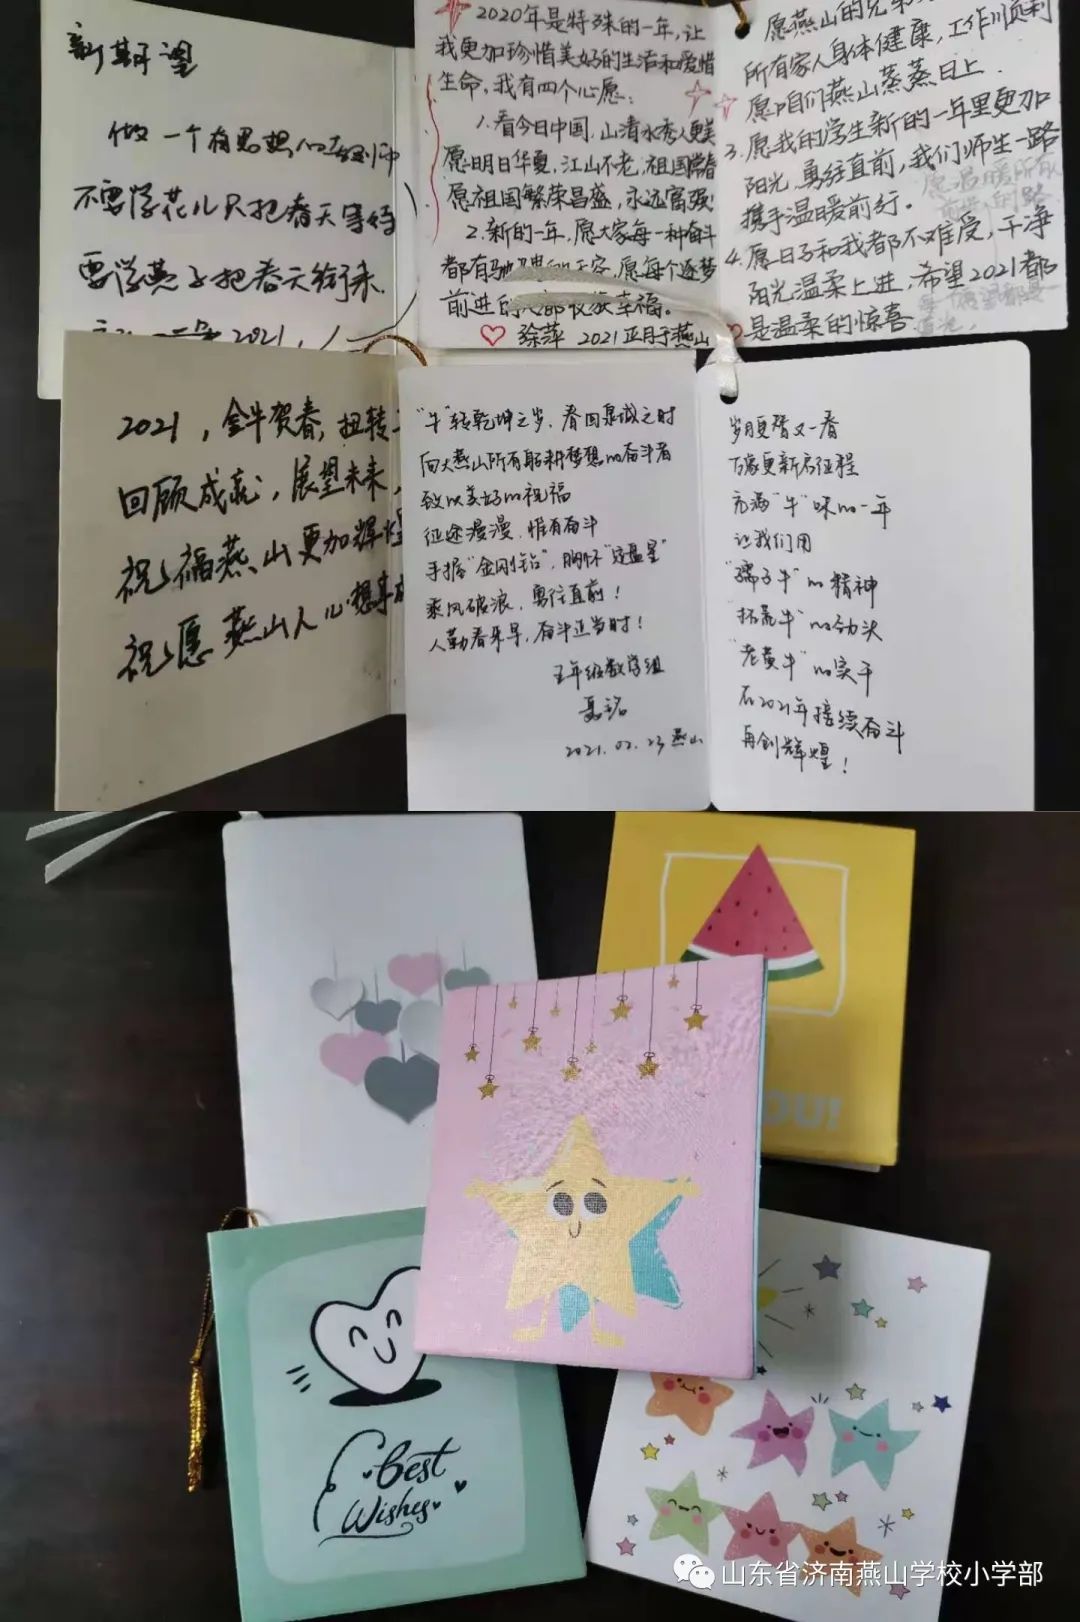 新期望
做一个有思想的教师
不要学花儿只把春天等待
要学燕子把春天衔来
2021
2020年是特殊的一年,让
我更加珍惜美好的生活和爱惜
生命,我有四个心愿:
1.看今日中国,山清水秀人更美
愿明日华夏,江山不老,祖国常春
愿祖国繁荣昌盛,永远富强!
2.新的一年,愿大家每一种奋斗
都有 愿每个逐梦
前进的 都收获幸福。
徐萍 2021正月于燕山
愿燕山的兄
所有家人身体健康,工作顺利
愿咱们燕山蒸蒸日上.
3.愿我的学生新的一年里更加
阳光,勇往直前,我们师生一路
携手温暖前行。
4.愿日子和我都不难受,干净
阳光温柔上进,希望2021都
是温柔的惊喜
2021,金牛贺春,扭转
回顾成就,展望未来,
祝福燕山更加辉煌
祝愿燕山人心想事成
“牛”转乾坤之岁,春回泉城之时
向大燕山所有躬耕梦想的奋斗者
致以美好的祝福
征途漫漫,惟有奋斗
手握“金刚钻”,胸怀“定盘星”
乘风破浪,勇往直前!
人勤春来早,奋斗正当时!
五年级数学组
2021.02.23 燕山
岁月更替又一春
万象更新启征程
充满“牛”味的一年
让我们用
“孺子牛”的精神
“拓荒牛”的劲头
“老黄牛”的实干
在2021年接续奋斗
再创辉煌!
OU!
Best
Wishes
山东省济南燕山学校小学部